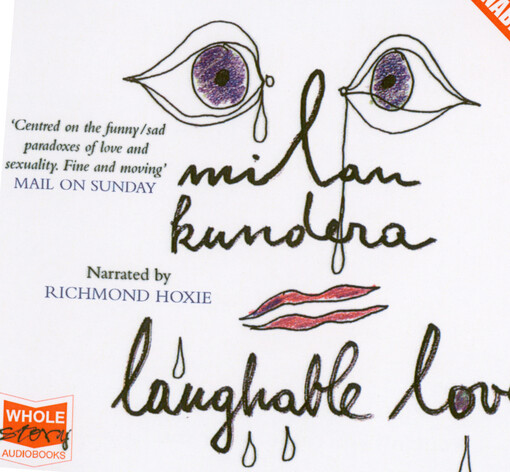 'Centred on the funny/sad
paradoxes of love and
sexuality. Fine and moving'
MAIL ON SUNDAY
milan
kundera
Narrated by
RICHMOND HOXIE
laughable lov
WHOLE
story
AUDIOBOOKS